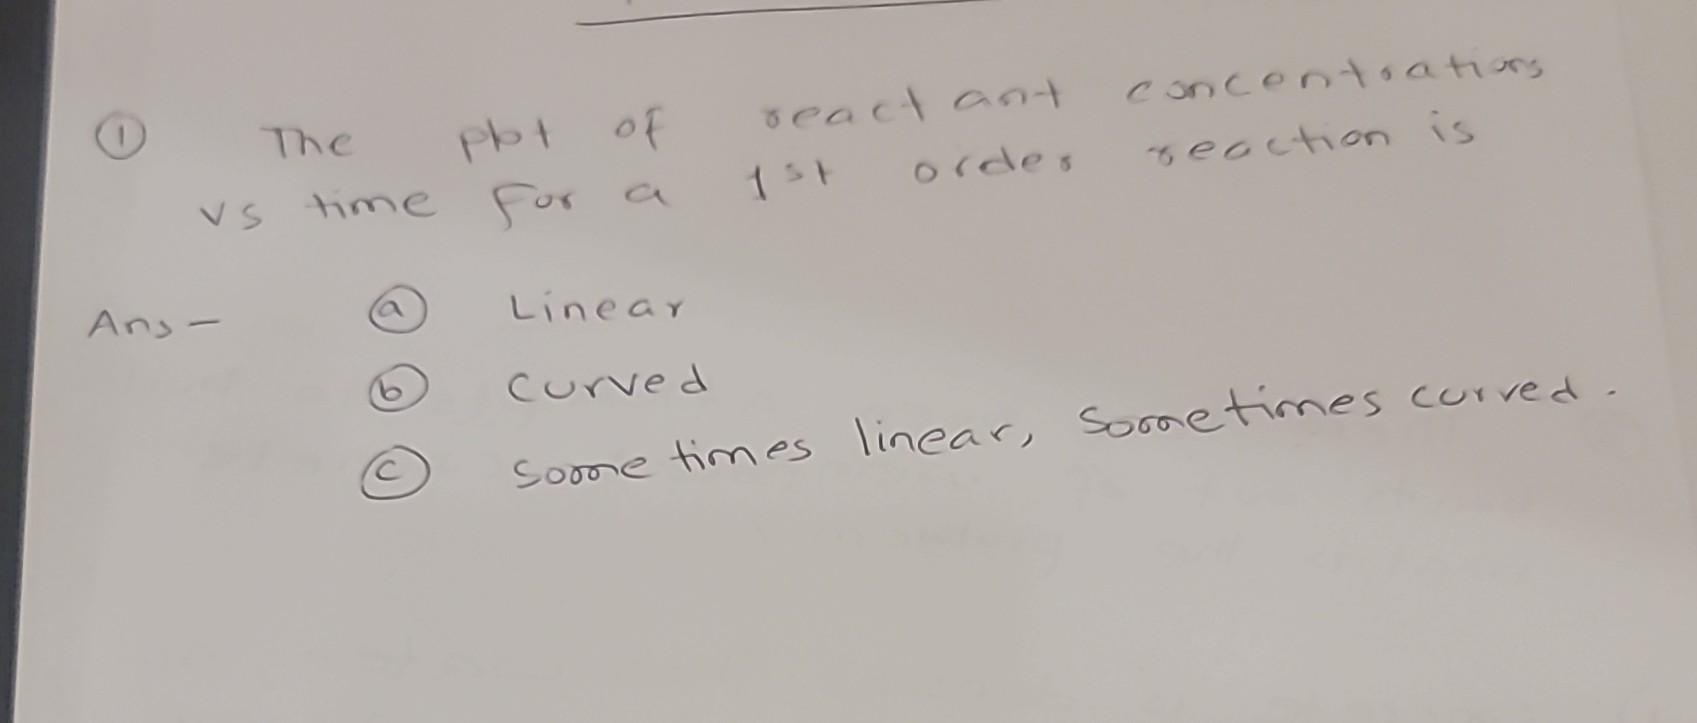 ① The plot of reactant concentrations
vs time for a 1st order reaction is
Ans - ⓐ Linear
ⓑ curved
ⓒ sometimes linear, Sometimes curved.